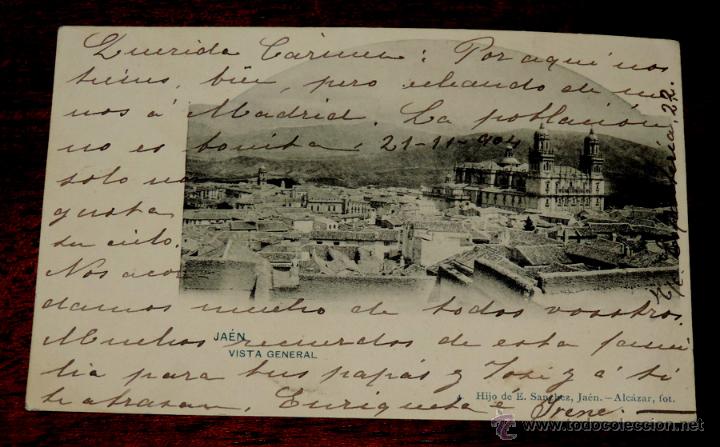 Querida Cármen: Por aquí nos
tienes, bien, pero echando de me
nos á Madrid. La población
no es bonita. 21-11-904
solo nos
gusta
su cielo.
Nos acor
damos mucho de todos vosotros.
Muchos recuerdos de esta fami
lia para tus papás y José y á ti
te abrazan, Enriqueta é Irene.
22.
JAÉN
VISTA GENERAL
4. Hijo de E. Sanchez, Jaén.—Alcázar, fot.
todocoleccion.net